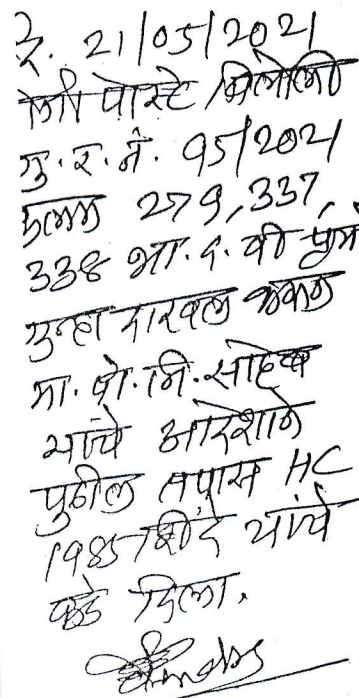 दि. 21/05/2021
रोजी पोस्टे बिलोली
गु. र. नं. 95/2021
कलम 279, 337,
338 भा. द. वी प्रमाणे
गुन्हा दाखल करून
मा. पो. नि. साहेब
यांचे आदेशाने
पुढील तपास HC
1985 शिंदे यांचे
कडे दिला.